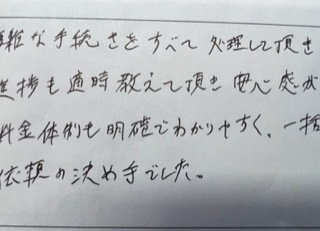 雑な手続きをすべて処理して頂き
進捗も適時教えて頂き安心感が
料金体制も明確でわかりやすく、一括
依頼の決め手でした。